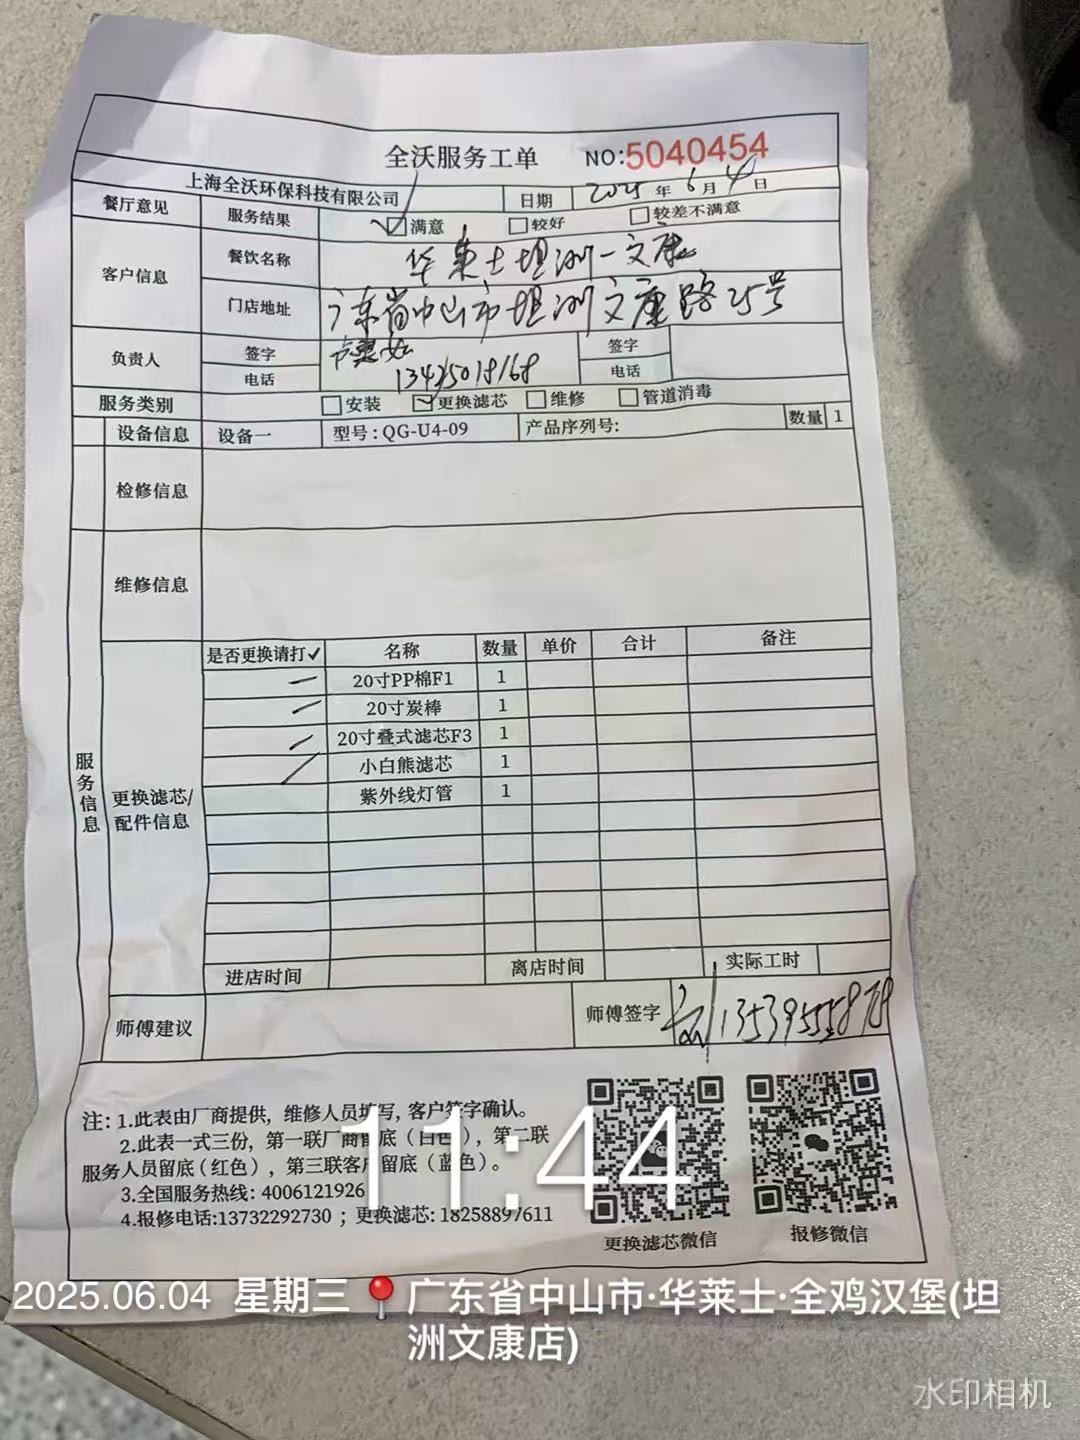 全沃服务工单 NO:5040454
上海全沃环保科技有限公司 日期 2025年6月4日
餐厅意见 服务结果 满意 较好 较差不满意
客户信息 餐饮名称 华莱士坦洲一文康
门店地址 广东省中山市坦洲文康路25号
负责人 签字 签字
电话 13425018168 电话
服务类别 安装 更换滤芯 维修 管道消毒
设备信息 设备一 型号:QG-U4-09 产品序列号: 数量 1
检修信息
维修信息
服务信息
更换滤芯/配件信息
是否更换请打✓ 名称 数量 单价 合计 备注
20寸PP棉F1 1
20寸炭棒 1
20寸叠式滤芯F3 1
小白熊滤芯 1
紫外线灯管 1
进店时间 离店时间 实际工时
师傅建议 师傅签字
注:1.此表由厂商提供,维修人员填写,客户签字确认。
2.此表一式三份,第一联厂商留底(白色),第二联
服务人员留底(红色),第三联客户留底(蓝色)。
3.全国服务热线:4006121926
4.报修电话:13732292730;更换滤芯:18258897611
更换滤芯微信 报修微信
11:44
2025.06.04 星期三 广东省中山市·华莱士·全鸡汉堡(坦
洲文康店)
水印相机